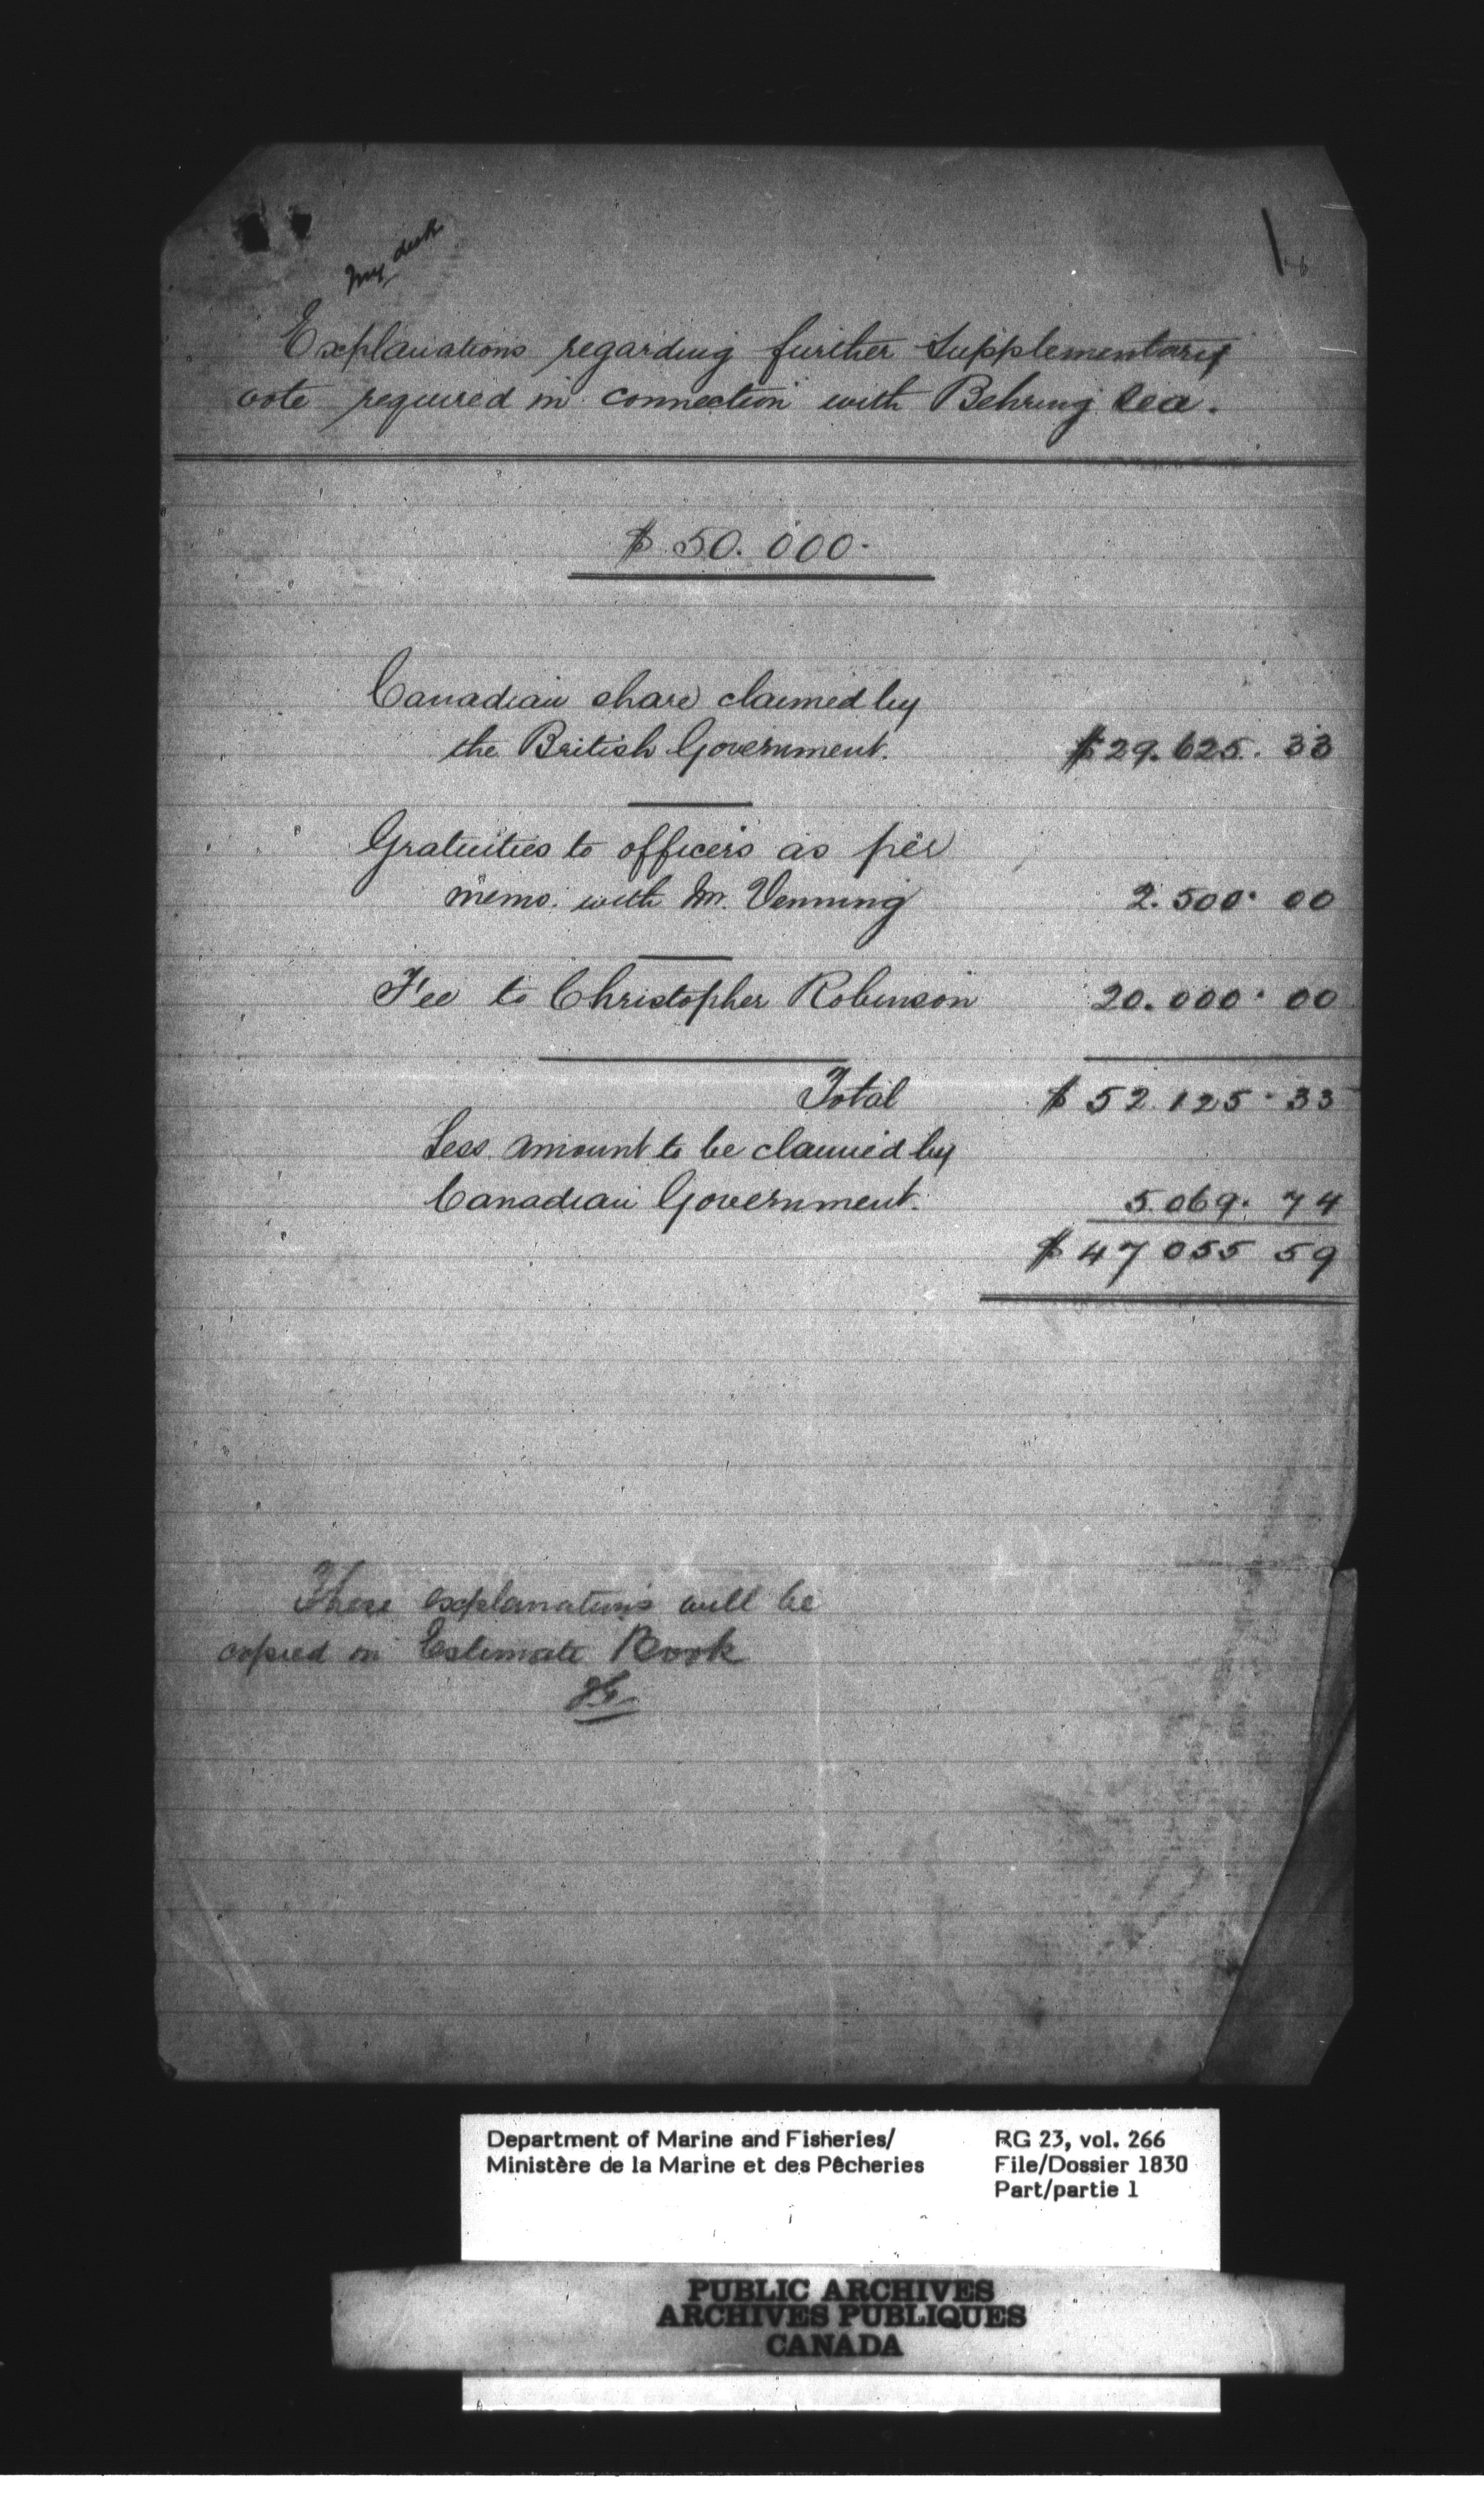 My desk
Explanations regarding further Supplementary
vote required in connection with Behring Sea.
$50.000.
Canadian share claimed by
the British Government. $29.625. 33
Gratuities to officers as per
memo. with Mr. Venning 2.500. 00
Fee to Christopher Robinson 20.000. 00
Total $52.125. 33
Less amount to be claimed by
Canadian Government. 5.069. 74
$47055 59
These explanations will be
copied in Estimate Book
Department of Marine and Fisheries/
Ministère de la Marine et des Pêcheries
RG 23, vol. 266
File/Dossier 1830
Part/partie 1
PUBLIC ARCHIVES
ARCHIVES PUBLIQUES
CANADA